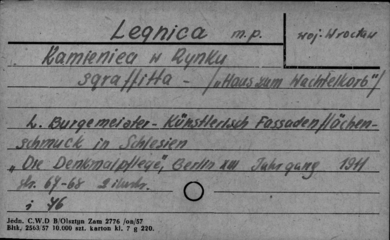 Legnica m.p. woj. Wrocław
Kamienica w Rynku
sgraffitta - /"Haus zum Wachtelkorb"/
L. Burgemeister - Künstlerisch Fassadenflächen-
schmuck in Schlesien
"Die Denkmalpflege", Berlin XIII Jahrgang 1911
str. 67-68
i 76
Jedn. C.W.D B/Olsztyn Zam 2776 /on/57
Bltk. 2563/57 10.000 szt. karton kl. 7 g 220.